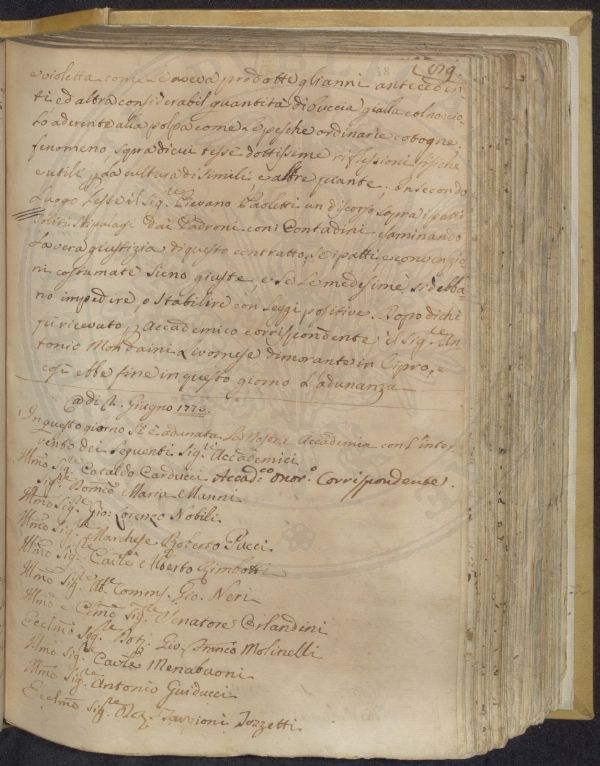 48 59.
e violetta come Le aveva prodotte gli anni anteceden
ti ed altra considerabil quantità di buccia gialla col noccio
lo aderente alla polpa come Le pesche ordinarie cotogne,
fenomeno, sopra di cui tesse dottissime riflessioni fisiche
e utili p. la cultura di simili e altre piante. In secondo
Luogo Lesse il Sig.re Pievano Paoletti un discorso sopra i patti
soliti stipularsi dai Padroni con i Contadini esaminando
La vera giustizia di questo contratto, se i patti e convenzio
ni costumate sieno giuste e se Le medesime si debba
no impedire, o stabilire con Leggi positive. Dopo di che
fù ricevuto p. Accademico corrispondente il Sig.re An
tonio Mondaini Livornese dimorante in Cipro, e
così ebbe fine in questo giorno L'adunanza
Adi Giugno 1773.
In questo giorno si è adunata La nostra Accademia con L'inter
vento dei seguenti Sig.ri Accademici
Illmo Sig.re Cataldo Carducci Accad.co onor.o Corrispondente.
Sig.re Dom.co Maria Manni
Illmo Sig.re Gio: Lorenzo Nobili
Illmo Sig.re Marchese Roberto Pucci
Illmo Sig.re Cav.re Alberto Rimbotti
Illmo Sig.re Ab.e Comm. Gio. Neri
Illmo e Clmo Sig.re Senatore Orlandini
Eccelmo Sig.re Dott. Gio. Franco Molinelli
Illmo Sig.re Cav.re Menabuoni
Illmo Sig.re Antonio Guiducci
Eccelmo Sig.re Ott. Targioni Tozzetti